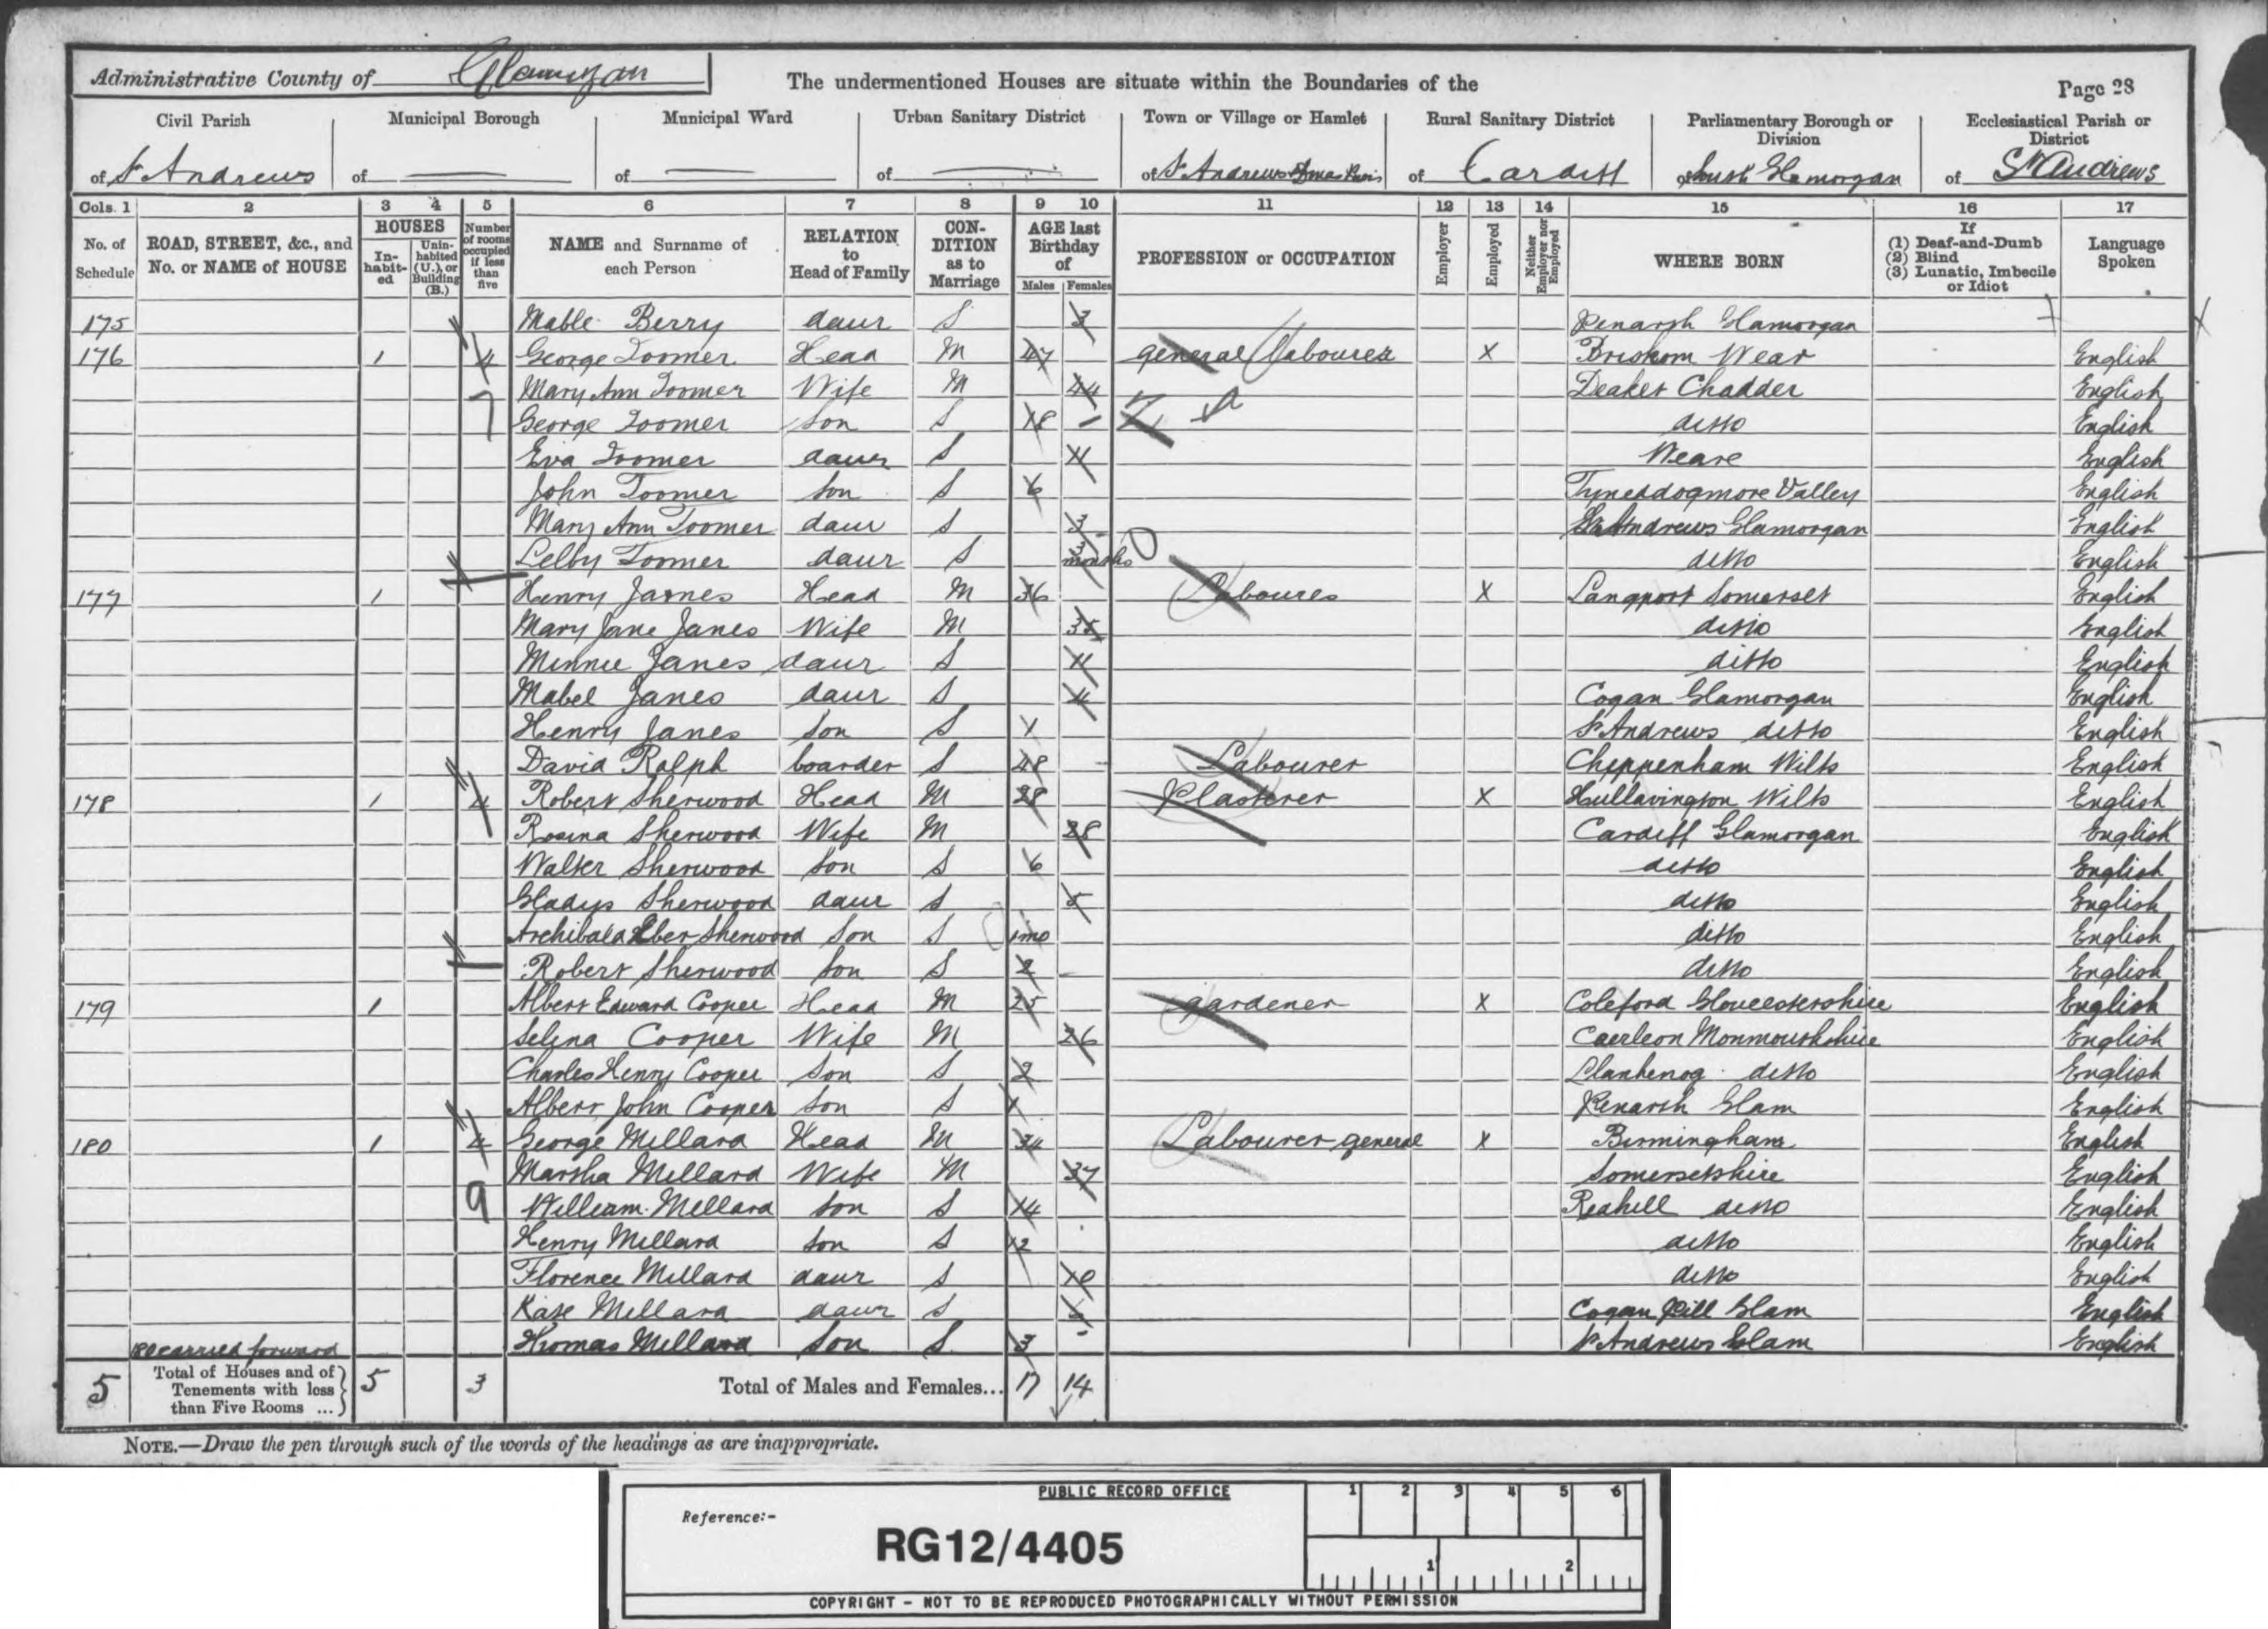 Administrative County of Glamorgan The undermentioned Houses are situate within the Boundaries of the Page 28
Civil Parish Municipal Borough Municipal Ward Urban Sanitary District Town or Village or Hamlet Rural Sanitary District Parliamentary Borough or Division Ecclesiastical Parish or District
of St Andrews of of of of St Andrews of Cardiff of South Glamorgan of St Andrews
Cols. 1 2 3 4 5 6 7 8 9 10 11 12 13 14 15 16 17
No. of Schedule ROAD, STREET, &c., and No. or NAME of HOUSE HOUSES In-habit-ed Unin-habited (U.), or Building (B.) Number of rooms occupied if less than five NAME and Surname of each Person RELATION to Head of Family CON-DITION as to Marriage AGE last Birthday of Males Females PROFESSION or OCCUPATION Employer Employed Neither Employer nor Employed WHERE BORN If (1) Deaf-and-Dumb (2) Blind (3) Lunatic, Imbecile or Idiot Language Spoken
175 Mable Berry daur S 3 Penarth Glamorgan
176 1 4 George Toomer Head M 47 general Labourer X Wear English
7 Mary Ann Toomer Wife M 44 Chadder English
George Toomer Son S 18 ditto English
Eva Toomer daur S 11 Weare English
John Toomer Son S 6 Valley English
Mary Ann Toomer daur S 3 St Andrews Glamorgan English
Lelby Toomer daur S 3 months ditto English
177 1 Henry Janes Head M 36 Labourer X Langport Somerset English
Mary Jane Janes Wife M 35 ditto English
Minnie Janes daur S 11 ditto English
Mabel Janes daur S 4 Cogan Glamorgan English
Henry Janes Son S 1 St Andrews ditto English
David Ralph boarder S 48 Labourer Chippenham Wilts English
178 1 4 Robert Sherwood Head M 28 Plasterer X Hullavington Wilts English
Rosina Sherwood Wife M 28 Cardiff Glamorgan English
Walter Sherwood Son S 6 ditto English
Gladys Sherwood daur S 5 ditto English
Archibald Eber Sherwood Son S 1mo ditto English
Robert Sherwood Son S 2 ditto English
179 1 Albert Edward Cooper Head M 25 gardener X Coleford Gloucestershire English
Selina Cooper Wife M 26 Caerleon Monmouthshire English
Charles Henry Cooper Son S 2 Llanhenog ditto English
Albert John Cooper Son S 1 Penarth Glam English
180 1 4 George Millard Head M 34 Labourer general X Birmingham English
Martha Millard Wife M 37 Somersetshire English
9 William Millard Son S 14 Redhill ditto English
Henry Millard Son S 12 ditto English
Florence Millard daur S 10 ditto English
Kate Millard daur S 6 Cogan Pill Glam English
180 carried forward Thomas Millard Son S 3 St Andrews Glam English
5 Total of Houses and of Tenements with less than Five Rooms ... 5 3 Total of Males and Females... 17 14
NOTE.—Draw the pen through such of the words of the headings as are inappropriate.
PUBLIC RECORD OFFICE
1 2 3 4 5 6
Reference:-
RG12/4405
1 2
COPYRIGHT - NOT TO BE REPRODUCED PHOTOGRAPHICALLY WITHOUT PERMISSION